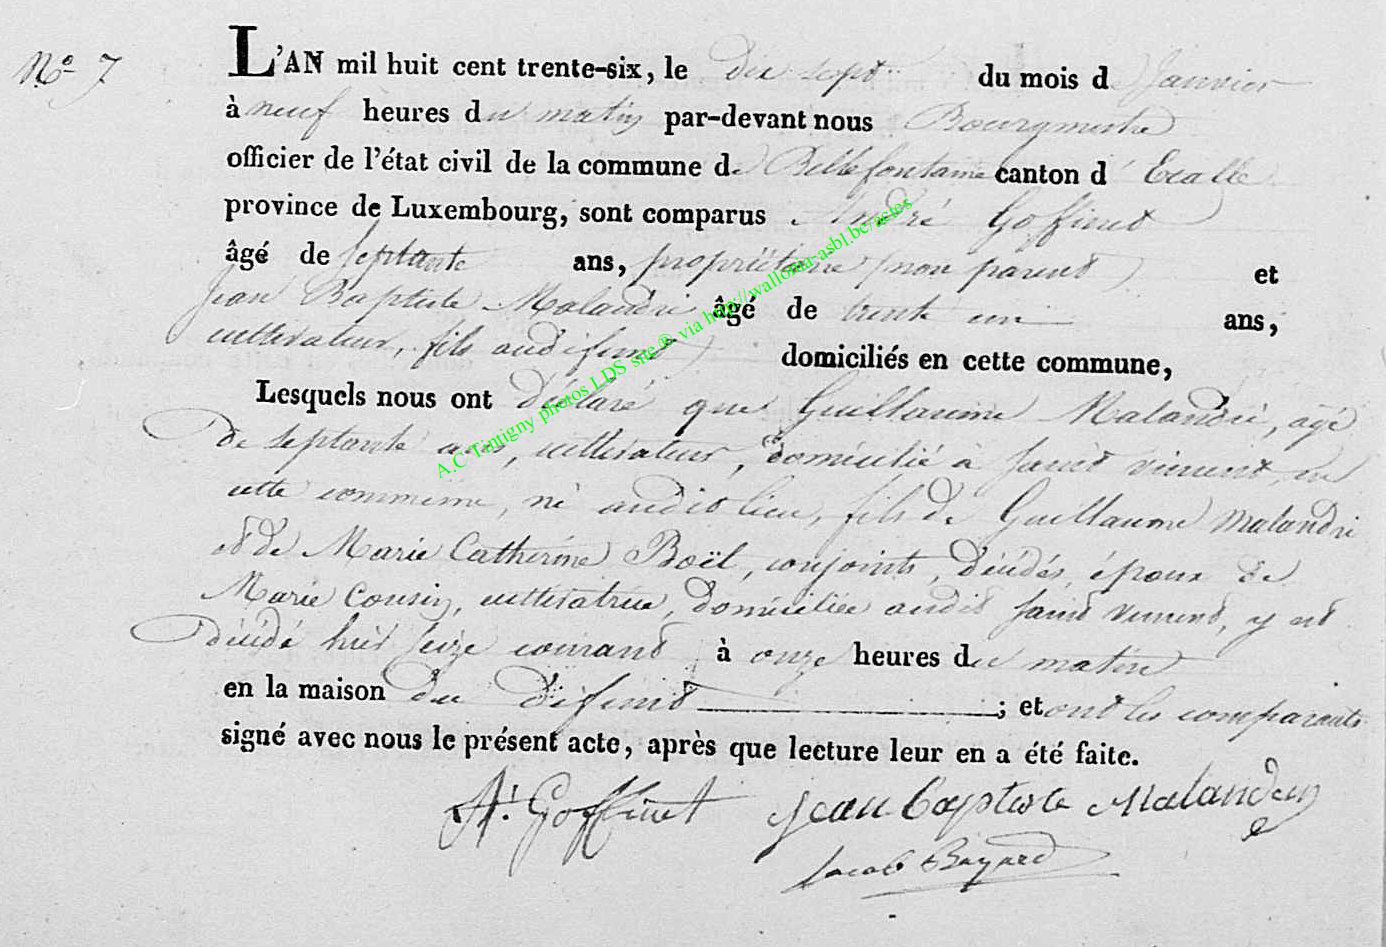 N° 7
L'AN mil huit cent trente-six, le dix sept du mois de Janvier
à neuf heures du matin par-devant nous Bourgmestre
officier de l'état civil de la commune de Bellefontaine canton d'Etalle
province de Luxembourg, sont comparus André Goffinet
âgé de septante ans, propriétaire (non parent) et
Jean Baptiste Malandri âgé de trente un ans,
cultivateur, fils au défunt) domiciliés en cette commune,
Lesquels nous ont déclaré que Guillaume Malandri, agé
de septante ans, cultivateur, domicilié à saint vincent, en
cette commune, né audit lieu, fils de Guillaume Malandri
et de Marie Catherine Boël, conjoints, décédés, époux de
Marie Cousin, cultivatrice, domiciliée audit saint vincent, y est
décédé hier seize courant à onze heures du matin
en la maison du défunt ; et ont les comparants
signé avec nous le présent acte, après que lecture leur en a été faite.
A. Goffinet Jean Baptiste Malandri
Jacob Bayard
A.C Tintigny photos LDS site ® via http://wallonia-asbl.be/actes